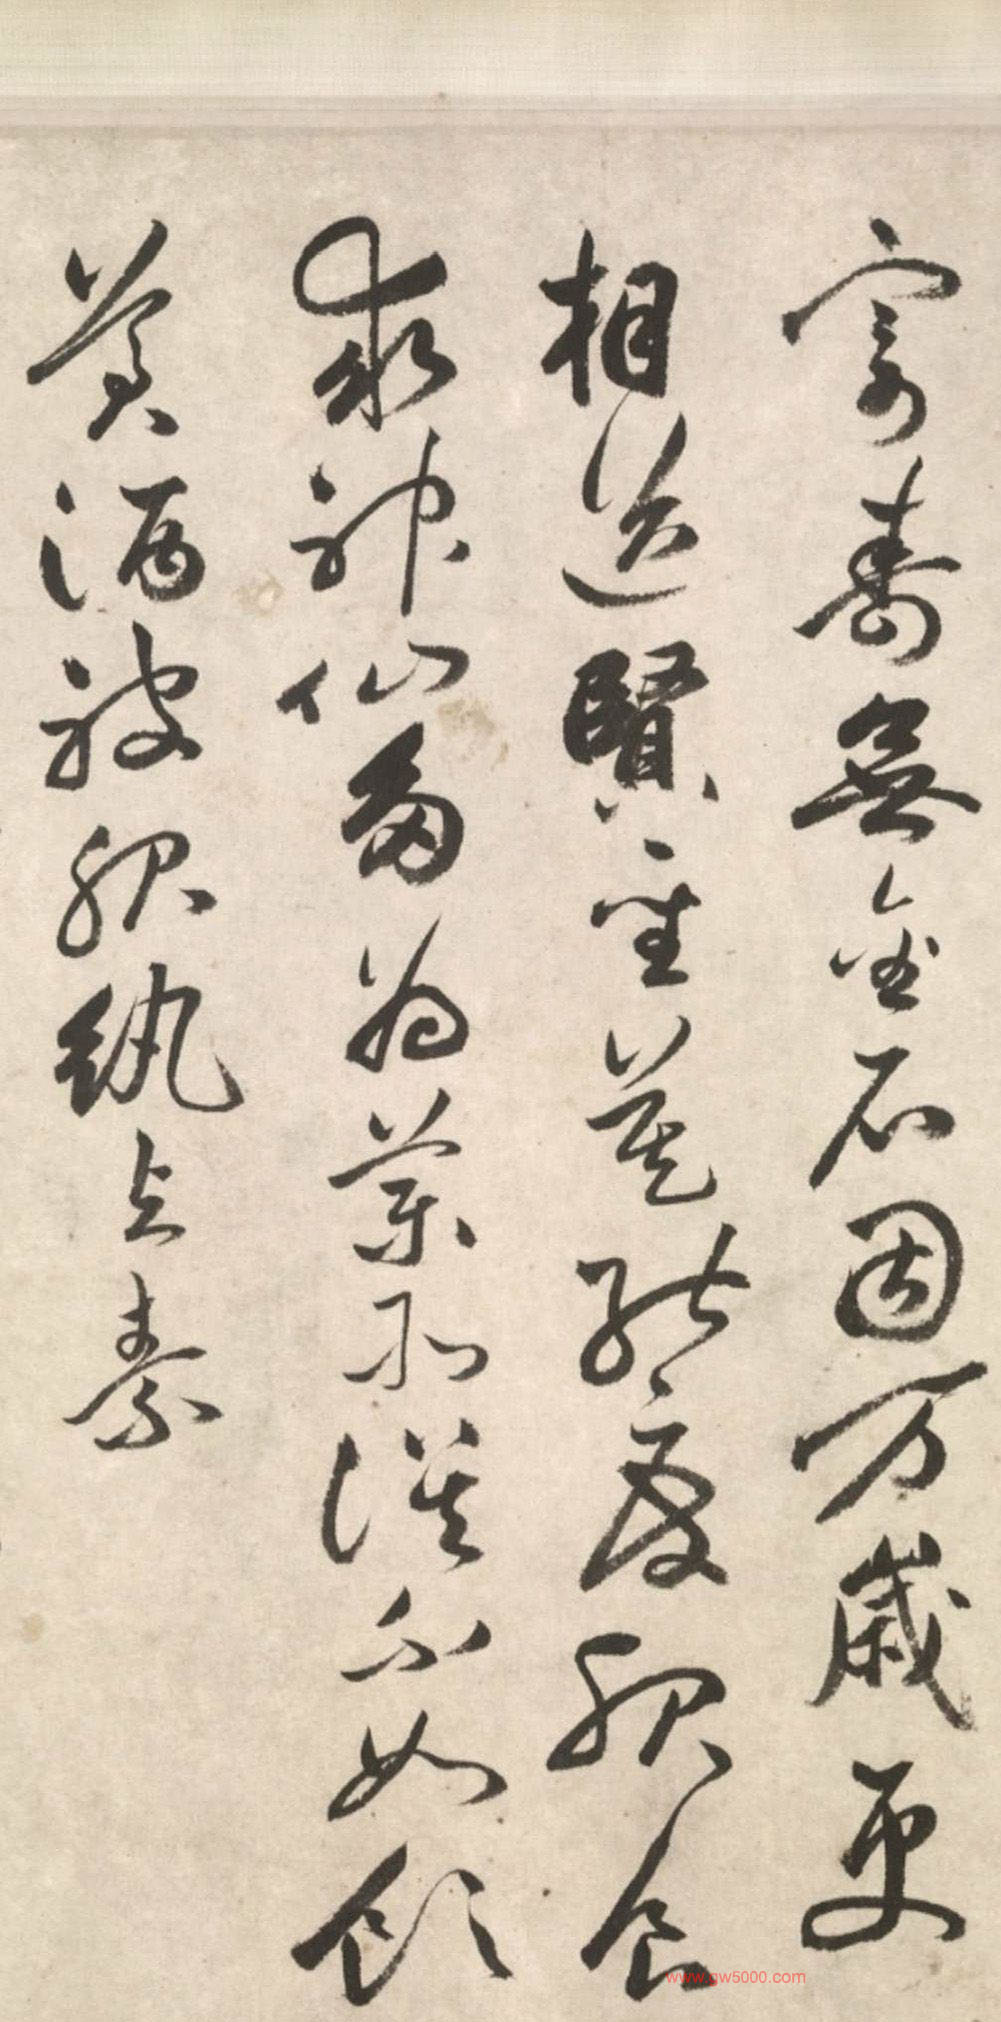 寄壽無金石固万歲更
相送賢聖莫能度服食
求神仙多為藥所誤不如飲
美酒被服紈与素
www.gw5000.com